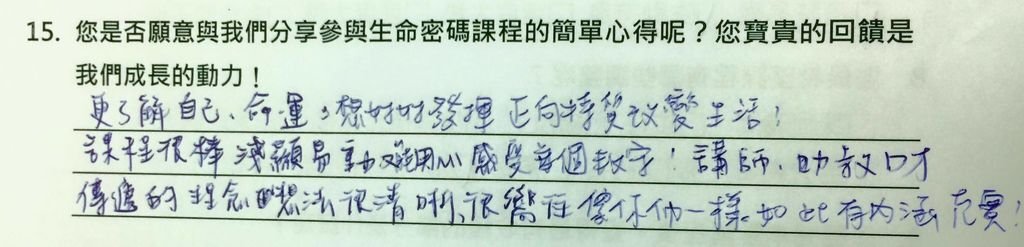 15. 您是否願意與我們分享參與生命密碼課程的簡單心得呢？您寶貴的回饋是
我們成長的動力！
更了解自己、命運，想好好發揮正向特質改變生活！
課程很棒淺顯易動又能用心感受每個數字！講師、助教口才
傳遞的理念思想法很清晰，很嚮往像你們一樣如此有內涵充實！